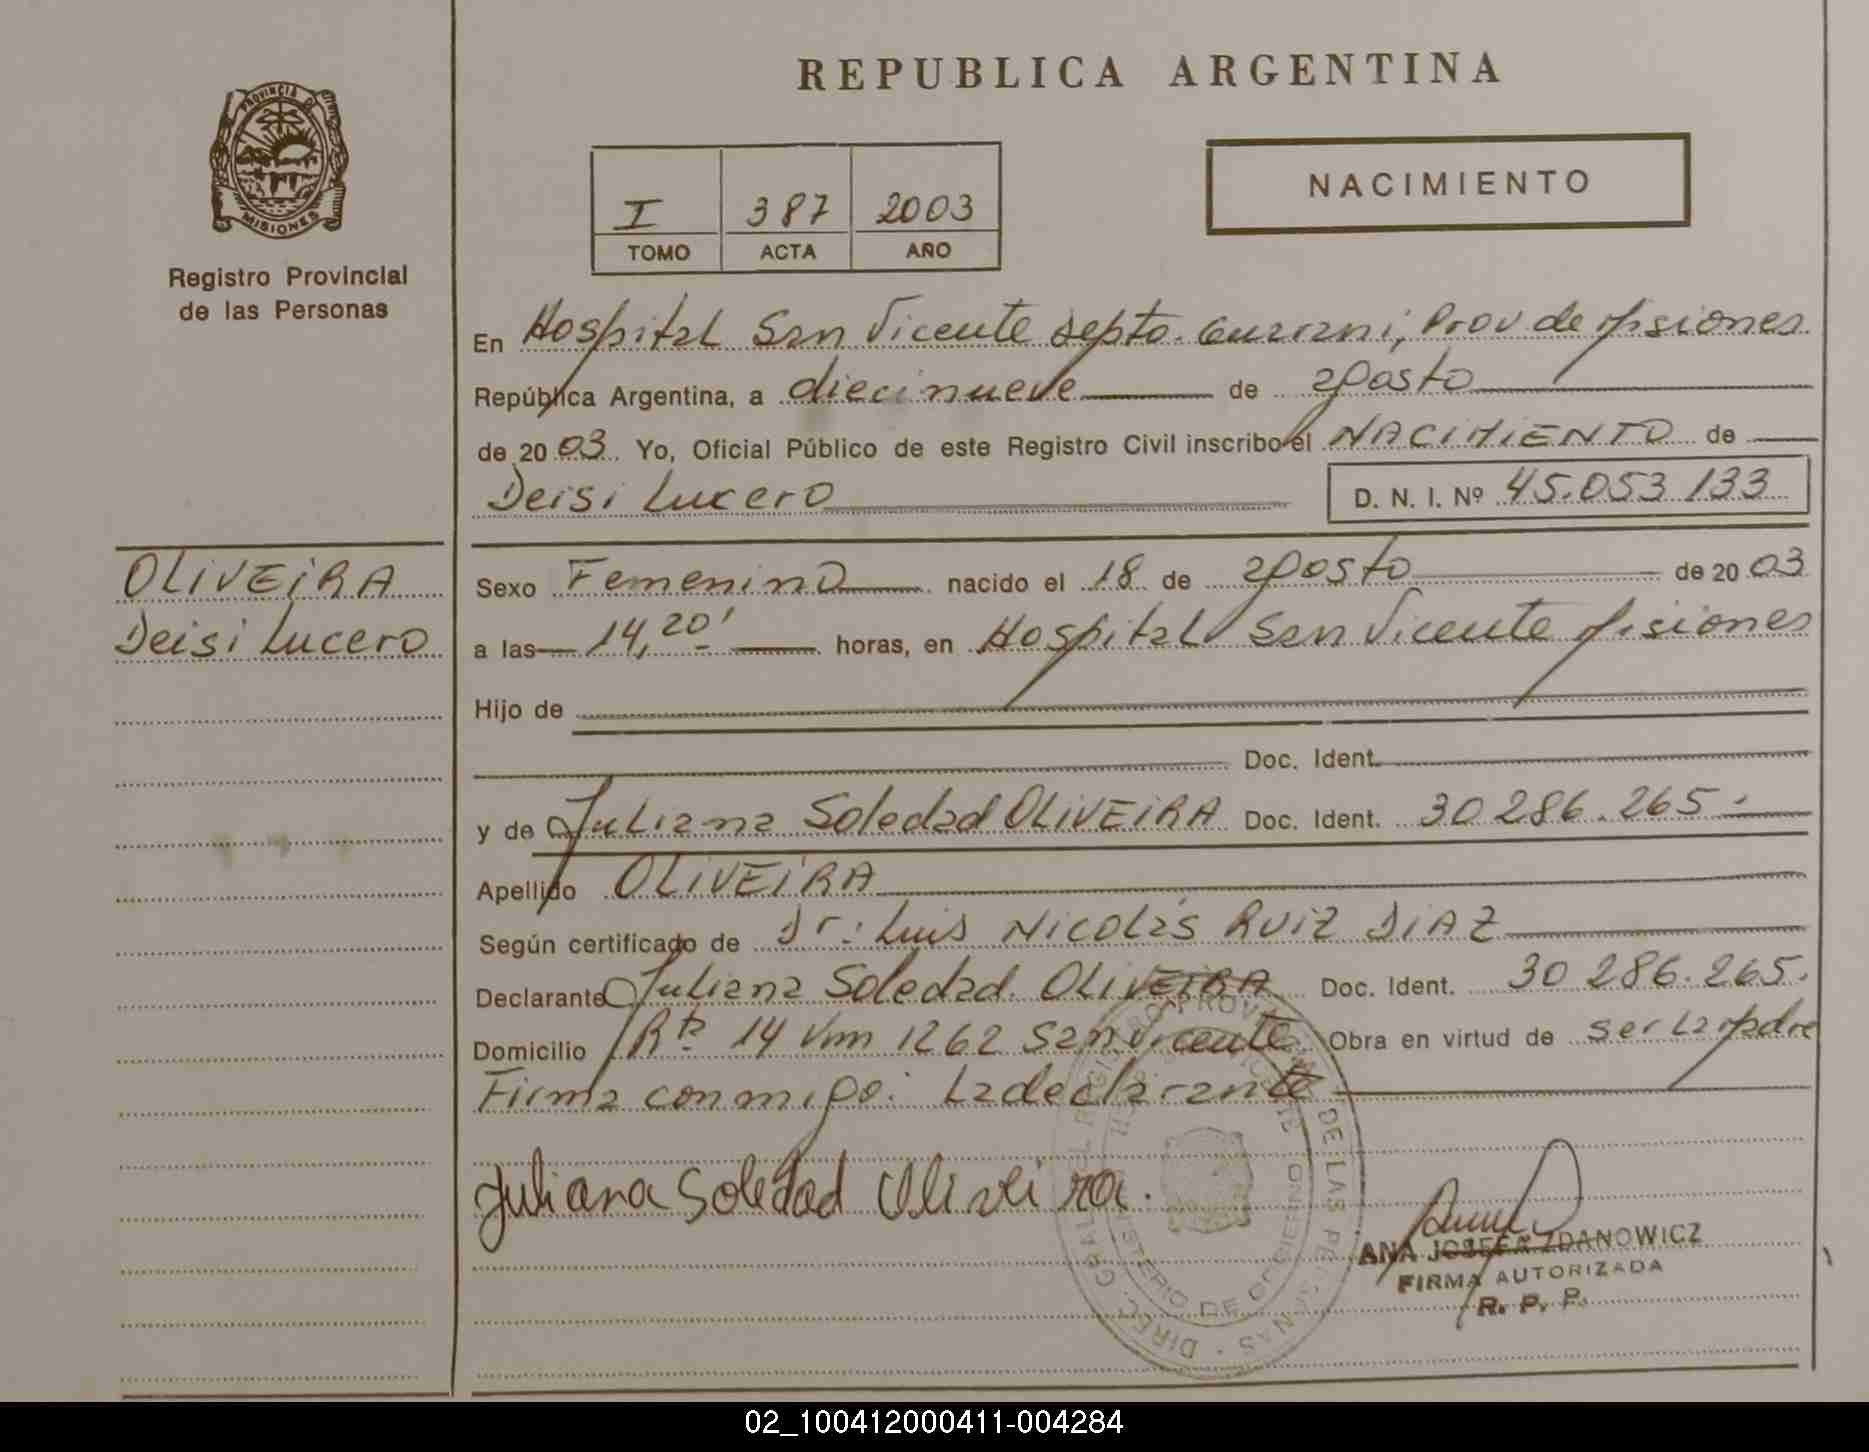 REPUBLICA ARGENTINA
PROVINCIA DE
MISIONES
Registro Provincial
de las Personas
I 387 2003
TOMO ACTA AÑO
NACIMIENTO
En Hospital San Vicente Depto. Guarani, Prov de Misiones
República Argentina, a diecinueve de agosto
de 2003. Yo, Oficial Público de este Registro Civil inscribo el NACIMIENTO de
Deisi Lucero D. N. I. Nº 45.053 133
OLIVEIRA
Deisi Lucero
Sexo Femenino nacido el 18 de agosto de 2003
a las 14,20' horas, en Hospital San Vicente Misiones
Hijo de
Doc. Ident.
y de Juliana Soledad OLIVEIRA Doc. Ident. 30 286.265.
Apellido OLIVEIRA
Según certificado de Dr: Luis Nicolás RUIZ DIAZ
Declarante Juliana Soledad OLIVEIRA Doc. Ident. 30 286.265.
Domicilio Rta 14 Km 1262 San Vicente Obra en virtud de ser la Madre
Firma conmigo: La declarante
Juliana Soledad Oliveira.
ANA JOSEFA ZDANOWICZ
FIRMA AUTORIZADA
R. P. P.
02_100412000411-004284